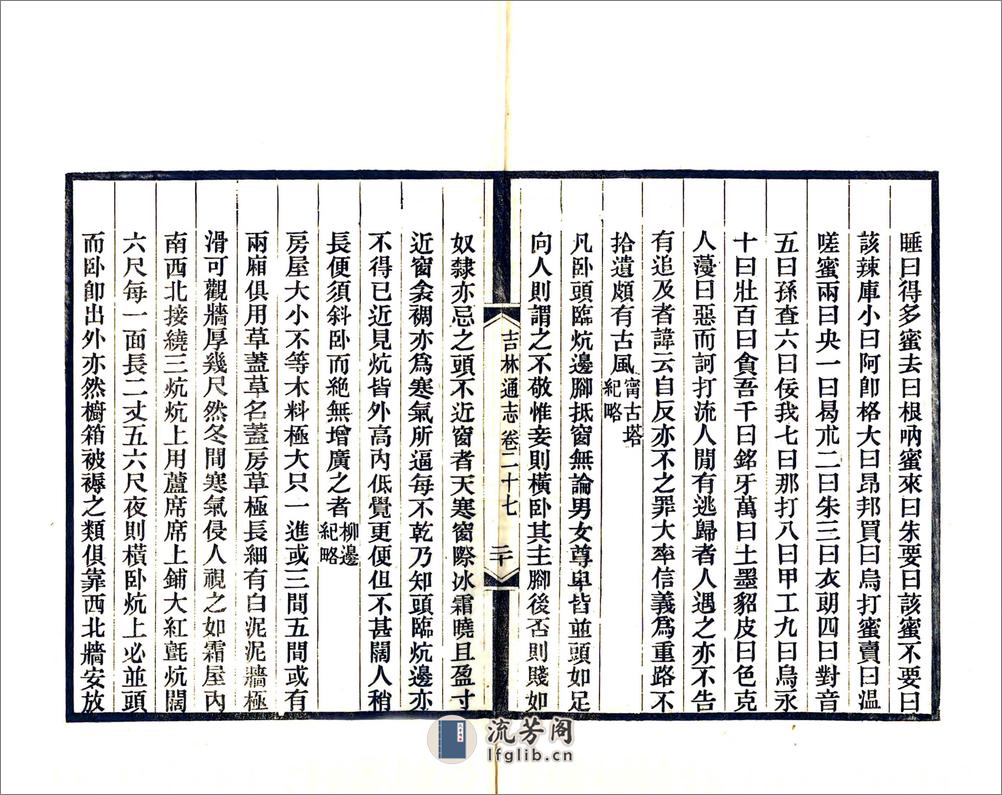 睡曰得多蜜去曰根吶蜜來曰朱要曰該蜜不要曰
該辣庫小曰阿卽格大曰昂邦買曰烏打蜜賣曰溫
嗟蜜兩曰央一曰曷朮二曰朱三曰衣朗四曰對音
五曰孫查六曰佞我七曰那打八曰甲工九曰烏永
十曰壯百曰貪吾千曰銘牙萬曰土墨貂皮曰色克
人薓曰惡而訶打流人閒有逃歸者人遇之亦不告
有追及者諱云自反亦不之罪大率信義爲重路不
拾遺頗有古風甯古塔紀略
凡卧頭臨炕邊腳抵窗無論男女尊卑皆並頭如足
向人則謂之不敬惟妾則橫卧其主腳後否則賤如
吉林通志 卷二十七 二十
奴隸亦忌之頭不近窗者天寒窗際冰霜曉且盈寸
近窗衾裯亦爲寒氣所逼每不乾乃知頭臨炕邊亦
不得已近見炕皆外高內低覺更便但不甚闊人稍
長便須斜卧而絕無增廣之者柳邊紀略
房屋大小不等木料極大只一進或三間五間或有
兩廂俱用草蓋草名蓋房草極長細有白泥泥牆極
滑可觀牆厚幾尺然冬間寒氣侵人視之如霜屋內
南西北接繞三炕炕上用蘆席席上鋪大紅氈炕闊
六尺每一面長二丈五六尺夜則橫卧炕上必並頭
而卧卽出外亦然櫥箱被褥之類俱靠西北牆安放
流芳阁
lfglib.cn